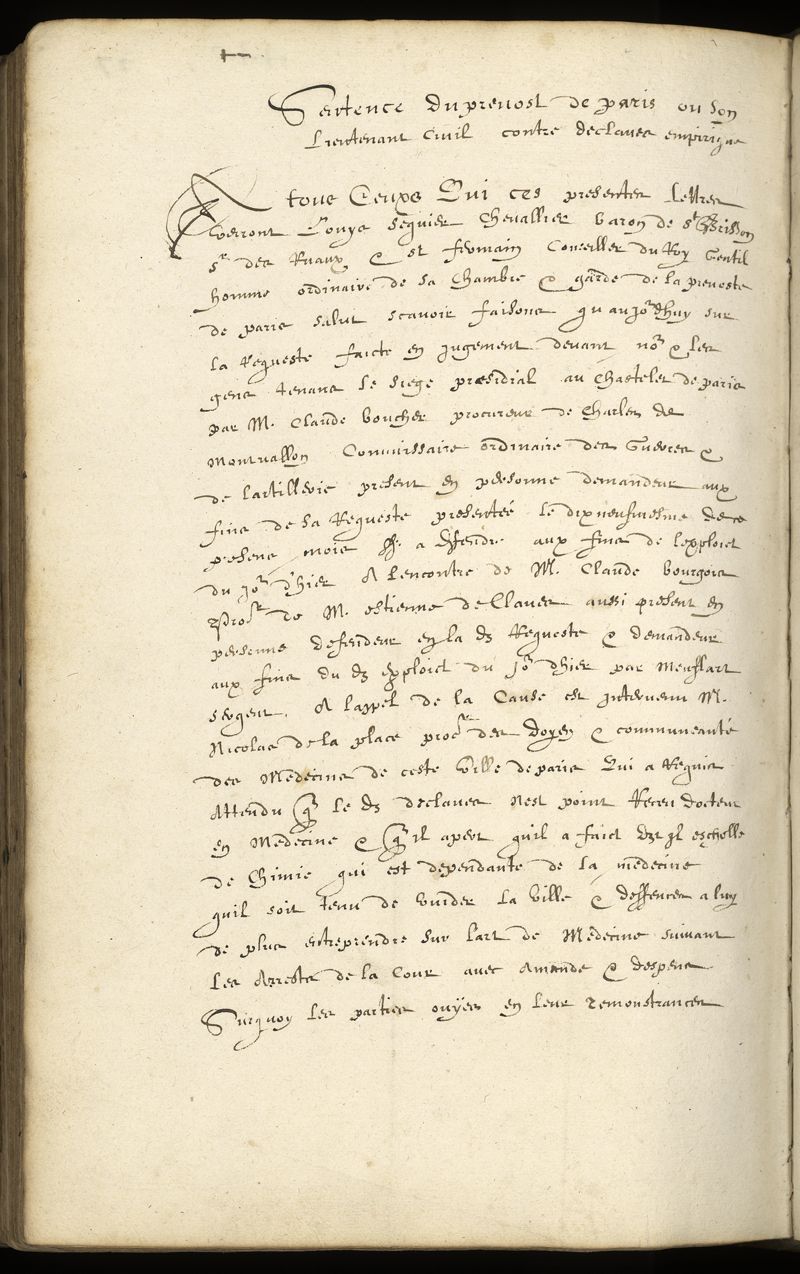 Sentence du prevost de paris ou son
Lieutenant Civil contre declaves empirique
A tous Ceuxs Qui ces presentes Lettres
verront Louys seguier Chevallier baron de st Brisson
sr des Ruaux & st fermain Conseiller du Roy Gentil
homme ordinaire de sa Chambre & garde de la prevoste
de paris salut scavoir faisons qu aujo.rdhuy sur
la Requeste faicte en jugement devant no.s & les
gens tenans le siege præsidial au Chastelet de paris
par M. Claude boucher procureur de Charles de
Montvallon Commissaire ordinaire des Guerres &
de lartillerie present en personne demandeur aux
fins de sa Requeste presenteé le dixneufviesme de ce
present mois & a deffendre aux fins de lexploict
du jo.r dhier A lencontre de M. Claude bourgois
Proc.r de M. estienne de Claves aussi present en
personne defendeur en la d. Requeste & demandeur
aux fins du d. exploict du jo.r dhier par Meuffart
sergent. A lappel de la Cause est intervenu M.
Nicolas de la place proc.r des doyen & communeauté
des Medecins de ceste Ville de paris Qui a Requis
Attendu q. le d. declaves Nest point Receu docteur
en Medecine & q. il apert quil a faict et escholle
de Chimie qui est dependante de la medecine
quil soit tenu de vuider la Ville & deffences a luy
de plus entreprendre sur lart de Medecine suivant
Les Arrests de la Cour avec Amende & despens
Surquoy Les parties ouÿes en leur Remonstrances